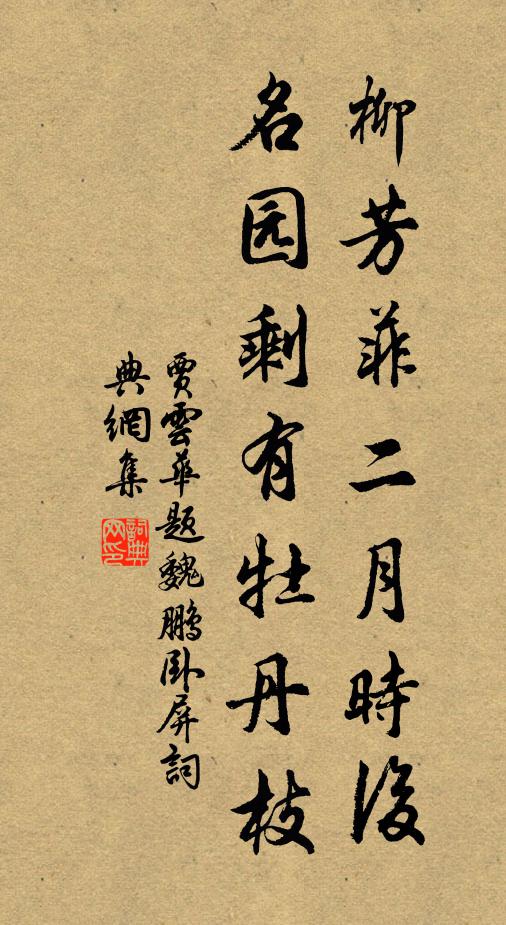 柳芳菲二月時後
名园剩有牡丹枝
賈雲華题魏鵬卧屏詞
典網集
詞典网印